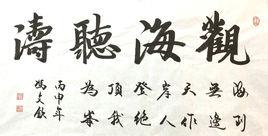 觀海聽濤
海到
無邊
天作
岸山
登絕
頂我
為峯
丙申年
馮文欽